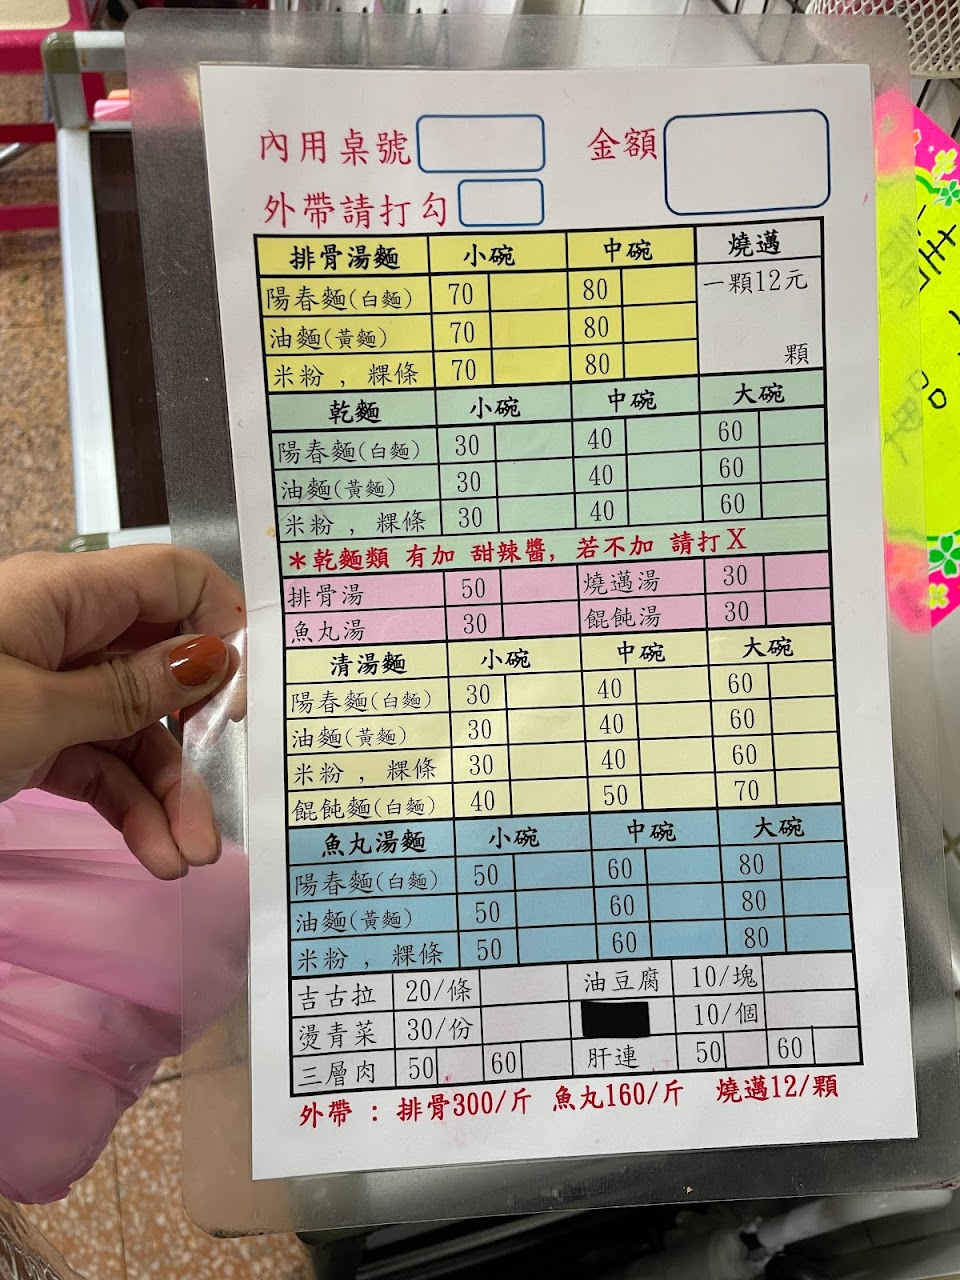 內用桌號 金額
外帶請打勾
排骨湯麵 小碗 中碗 燒邁
陽春麵(白麵) 70 80 一顆12元
油麵(黃麵) 70 80
米粉，粿條 70 80 顆
乾麵 小碗 中碗 大碗
陽春麵(白麵) 30 40 60
油麵(黃麵) 30 40 60
米粉，粿條 30 40 60
*乾麵類 有加 甜辣醬，若不加 請打X
排骨湯 50 燒邁湯 30
魚丸湯 30 餛飩湯 30
清湯麵 小碗 中碗 大碗
陽春麵(白麵) 30 40 60
油麵(黃麵) 30 40 60
米粉，粿條 30 40 60
餛飩麵(白麵) 40 50 70
魚丸湯麵 小碗 中碗 大碗
陽春麵(白麵) 50 60 80
油麵(黃麵) 50 60 80
米粉，粿條 50 60 80
吉古拉 20/條 油豆腐 10/塊
燙青菜 30/份 10/個
三層肉 50 60 肝連 50 60
外帶：排骨300/斤 魚丸160/斤 燒邁12/顆